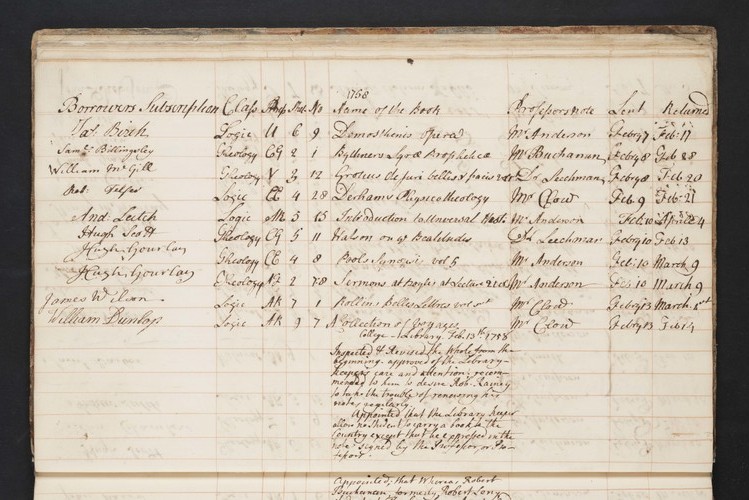 1758
Borrowers Subscription Class Press Shel No Name of the Book Professors note Lent Returned
Jas. Birch Logic U 6 9 Demosthenis opera Mr Anderson Febry 7 Feb: 17
Saml. Billingsley Theology CG 2 1 Bythneri Lyra Prophetica Mr Buchanan Febry 8 Feb 28
William McGill Theology Y 3 12 Grotius de jure belli & pacis Dr Leechman Febry 8 Feb 20
Rob: Logic 4 28 Derhams Physicotheology Mr Clow Feb 9 Feb: 21
And Leitch Logic M 3 15 Introduction to Universal Hist. Mr Anderson Feb: 10 April 4
Hugh Scott Theology CG 5 11 Watson on ye Beatitudes Dr Leechman Febry 10 Feb 13
Hugh Gourlay Theology 4 8 Pools Synopsis vol 5 Mr Anderson Feb: 10 March 9
Hugh Gourlay Theology 2 78 Sermons at Boyles Lecture Mr Anderson Feb 10 March 9
James Wilson Logic AK 7 1 Rollins Belles Lettres vol 1st Mr Clow Febry 13 March 1st
William Dunlop Logic AK 9 7 A Collection of Voyages Mr Clow Febry 13 Feb 14
College-Library, Feb. 13th 1758
Inspected & Revised the Whole from the
beginning approve of the Library-
keepers care and attention; recom-
mended to him to desire Rob. Rainey
to take the trouble of renewing his
note regularly.
Appointed that the Library keeper
allow no Student to carry a book to the
Country except that be expressed in the
note signed by the Professor or Pro-
fessors.
Appointed, that Whereas Robert
Buchanan, formerly Robert Long